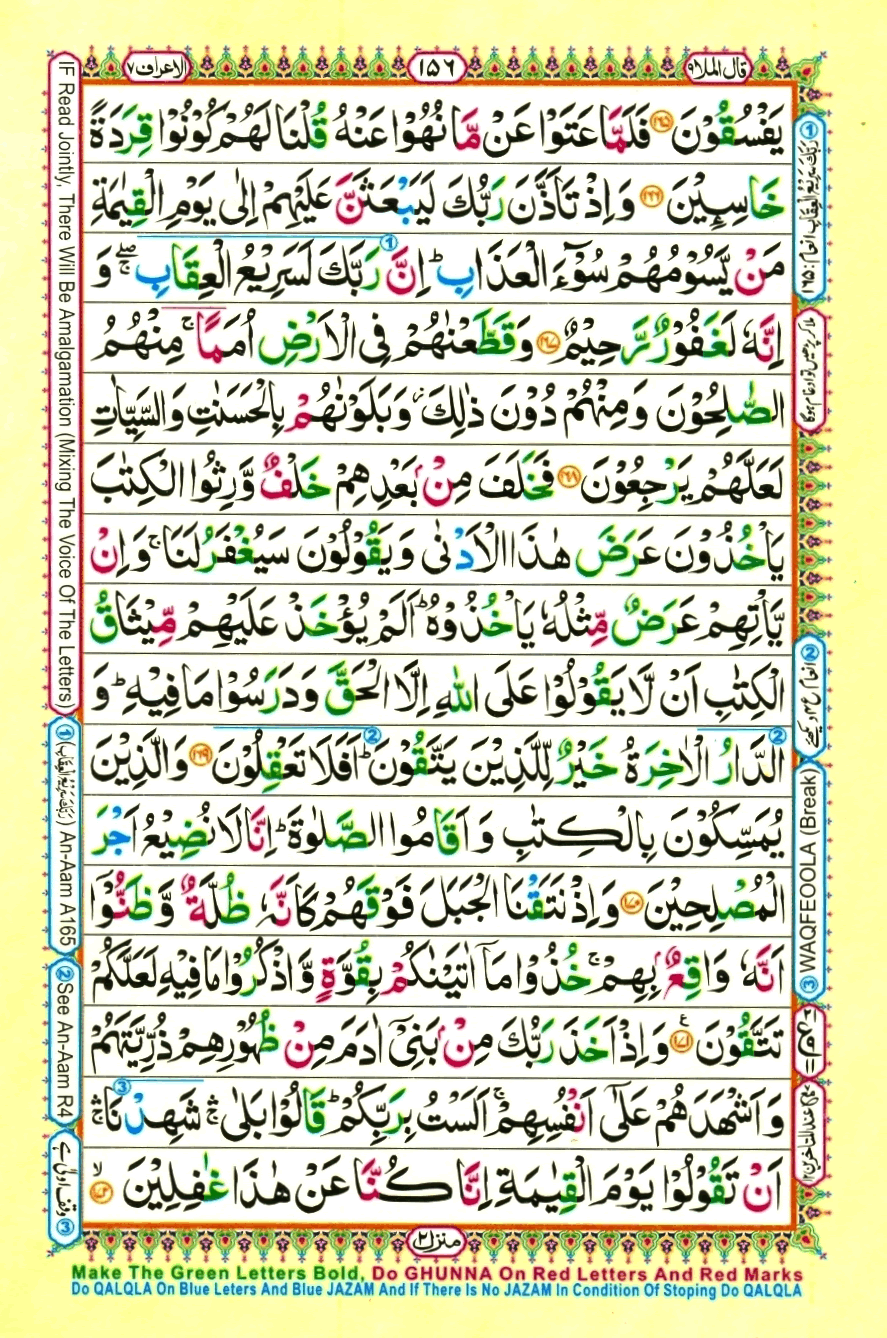 قال الملا ۹
۱۵٦
الاعراف ۷
يَفۡسُقُوۡنَ ﴿۱۶۵﴾ فَلَمَّا عَتَوۡا عَنۡ مَّا نُهُوۡا عَنۡهُ قُلۡنَا لَهُمۡ كُوۡنُوۡا قِرَدَةً
خَاسِـِٕيۡنَ ﴿۱۶۶﴾ وَاِذۡ تَاَذَّنَ رَبُّكَ لَيَبۡعَثَنَّ عَلَيۡهِمۡ اِلٰى يَوۡمِ الۡقِيٰمَةِ
مَنۡ يَّسُوۡمُهُمۡ سُوۡٓءَ الۡعَذَابِ‌ؕ اِنَّ رَبَّكَ لَسَرِيۡعُ الۡعِقَابِ ‌ۖۚ وَ
اِنَّهٗ لَـغَفُوۡرٌ رَّحِيۡمٌ ﴿۱۶۷﴾ وَقَطَّعۡنٰهُمۡ فِى الۡاَرۡضِ اُمَمًا‌ ۚ مِنۡهُمُ
الصّٰلِحُوۡنَ وَمِنۡهُمۡ دُوۡنَ ذٰلِكَ‌ ؗ وَبَلَوۡنٰهُمۡ بِالۡحَسَنٰتِ وَالسَّيِّاٰتِ
لَعَلَّهُمۡ يَرۡجِعُوۡنَ ﴿۱۶۸﴾ فَخَلَفَ مِنۡۢ بَعۡدِهِمۡ خَلۡفٌ وَّرِثُوا الۡكِتٰبَ
يَاۡخُذُوۡنَ عَرَضَ هٰذَا الۡاَدۡنٰى وَيَقُوۡلُوۡنَ سَيُغۡفَرُ لَنَا‌ ۚ وَاِنۡ
يَّاۡتِهِمۡ عَرَضٌ مِّثۡلُهٗ يَاۡخُذُوۡهُ‌ ؕ اَلَمۡ يُؤۡخَذۡ عَلَيۡهِمۡ مِّيۡثَاقُ
الۡـكِتٰبِ اَنۡ لَّا يَقُوۡلُوۡا عَلَى اللّٰهِ اِلَّا الۡحَـقَّ وَدَرَسُوۡا مَا فِيۡهِ‌ ؕ وَ
الدَّارُ الۡاٰخِرَةُ خَيۡرٌ لِّـلَّذِيۡنَ يَتَّقُوۡنَ‌ ؕ اَفَلَا تَعۡقِلُوۡنَ ﴿۱۶۹﴾ وَالَّذِيۡنَ
يُمَسِّكُوۡنَ بِالۡـكِتٰبِ وَاَقَامُوا الصَّلٰوةَ ؕ اِنَّا لَا نُضِيۡعُ اَجۡرَ
الۡمُصۡلِحِيۡنَ ﴿۱۷۰﴾ وَاِذۡ نَـتَقۡنَا الۡجَـبَلَ فَوۡقَهُمۡ كَاَنَّهٗ ظُلَّةٌ وَّظَنُّوۡۤا
اَنَّهٗ وَاقِعٌ ۢ بِهِمۡ‌ ۚ خُذُوۡا مَاۤ اٰتَيۡنٰكُمۡ بِقُوَّةٍ وَّاذۡكُرُوۡا مَا فِيۡهِ لَعَلَّكُمۡ
تَتَّقُوۡنَ ﴿۱۷۱﴾ وَاِذۡ اَخَذَ رَبُّكَ مِنۡۢ بَنِىۡۤ اٰدَمَ مِنۡ ظُهُوۡرِهِمۡ ذُرِّيَّتَهُمۡ
وَ اَشۡهَدَهُمۡ عَلٰٓى اَنۡفُسِهِمۡ‌ ۚ اَلَسۡتُ بِرَبِّكُمۡ‌ ؕ قَالُوۡا بَلٰى‌ ۛۚ شَهِدۡنَا ‌ۛۚ
اَنۡ تَقُوۡلُوۡا يَوۡمَ الۡقِيٰمَةِ اِنَّا كُنَّا عَنۡ هٰذَا غٰفِلِيۡنَ ﴿۱۷۲﴾ ۙ
منزل ۲
IF Read Jointly, There Will Be Amalgamation (Mixing The Voice Of The Letters)
① (رَبَّكَ سَرِيۡعُ الۡعِقَابِ) An-Aam A165
② See An-Aam R4
③ وقف اولیٰ ہے
① رَبَّكَ سَرِيۡعُ الۡعِقَابِ انعام: ۱۶۵
ملا کر پڑھیں تو ادغام ہوگا
② انعام ع ۴ دیکھیے
③ WAQFEOOLA (Break)
Make The Green Letters Bold, Do GHUNNA On Red Letters And Red Marks
Do QALQLA On Blue Leters And Blue JAZAM And If There Is No JAZAM In Condition Of Stoping Do QALQLA